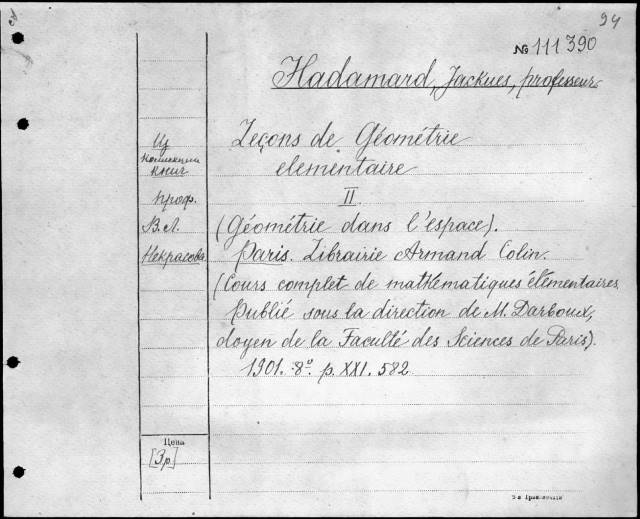 94
№ 111390
Hadamard, Jackues, professeur
Leçons de Géométrie
elementaire
II
(Géométrie dans l'espace).
Paris. Librairie Armand Colin.
(Cours complet de mathématiques élémentaires
Publié sous la direction de M. Darboux,
doyen de la Faculté des Sciences de Paris).
1901. 8º. p. XXI. 582
Из
коллекции
книг
проф.
В. Л.
Некрасова
Цена
[3р]